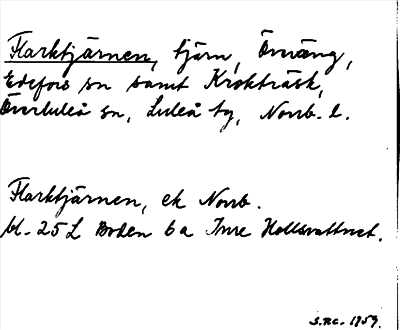 Flarktjärnen, tjärn, Överäng,
Edefors sn samt Krokträsk,
Överluleå sn, Luleå tg, Norrb. l.
Flarktjärnen, ek Norrb.
bl. 25 L Boden 6 a Inre Hallsvattnet.
S.RC. 1959.